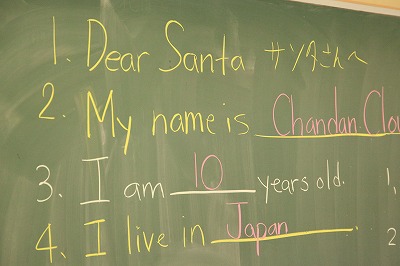 1. Dear Santa サンタさんへ
2. My name is Chandan Clou
3. I am 10 years old.
4. I live in Japan.
1,
2